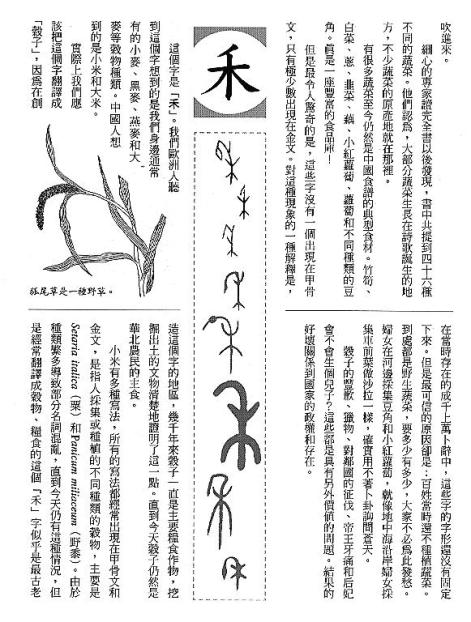 吹進來。
細心的專家讀完全書以後發現，書中共提到四十六種
不同的蔬菜。他們認為，大部分蔬菜生長在詩歌誕生的地
方，不少蔬菜的原產地就在那裡。
有很多蔬菜至今仍然是中國食譜的典型食材。竹筍、
白菜、蔥、韭菜、藕、小紅蘿蔔、蘿蔔和不同種類的豆
角。真是一座豐富的食品庫！
但是最令人驚奇的是，這些字沒有一個出現在甲骨
文，只有極少數出現在金文。對這種現象的一種解釋是，
在當時存在的成千上萬卜辭中，這些字的字形還沒有固定
下來。但是最可信的原因卻是：百姓當時還不種植蔬菜。
到處都是野生蔬菜，要多少有多少，大家不必為此發愁。
婦女在河邊採集豆角和小紅蘿蔔，就像地中海沿岸婦女採
集車前菜做沙拉一樣，確實用不著卜卦詢問蒼天。
穀子的豐歉、獵物、對鄰國的征伐、帝王牙痛和后妃
會不會生個兒子？這些都是具有另外價值的問題。結果的
好壞關係到國家的政權和存在。
禾
這個字是「禾」。我們歐洲人聽
到這個字想到的是我們身邊通常
有的小麥、黑麥、燕麥和大
麥等穀物種類。中國人想
到的是小米和大米。
實際上我們應
該把這個字翻譯成
「穀子」，因為在創
狐尾草是一種野草。
造這個字的地區，幾千年來穀子一直是主要糧食作物，挖
掘出土的文物清楚地證明了這一點。直到今天穀子仍然是
華北農民的主食。
小米有多種寫法，所有的寫法都經常出現在甲骨文和
金文，是指人採集或種植的不同種類的穀物，主要是
Setaria italica（粟）和Panicum miliaceum（野黍）。由於
種類繁多導致部分名詞混亂，直到今天仍有這種情況，但
是經常翻譯成穀物、糧食的這個「禾」字似乎是最古老